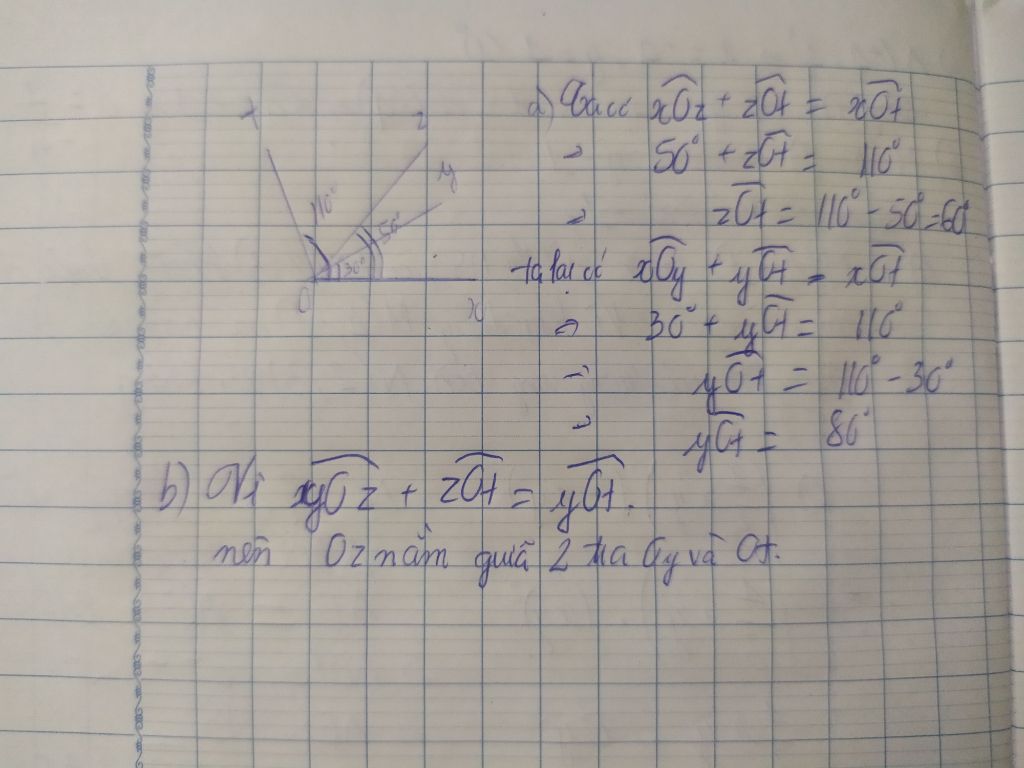 t
z
y
110°
50°
30°
O
x
a) Ta có xOz + zOt = xOt
⇒ 50° + zOt = 110°
⇒ zOt = 110° - 50° = 60°
ta lại có xOy + yOt = xOt
⇒ 30° + yOt = 110°
⇒ yOt = 110° - 30°
⇒ yOt = 80°
b) Vì yOz + zOt = yOt.
nên Oz nằm giữa 2 tia Oy và Ot.